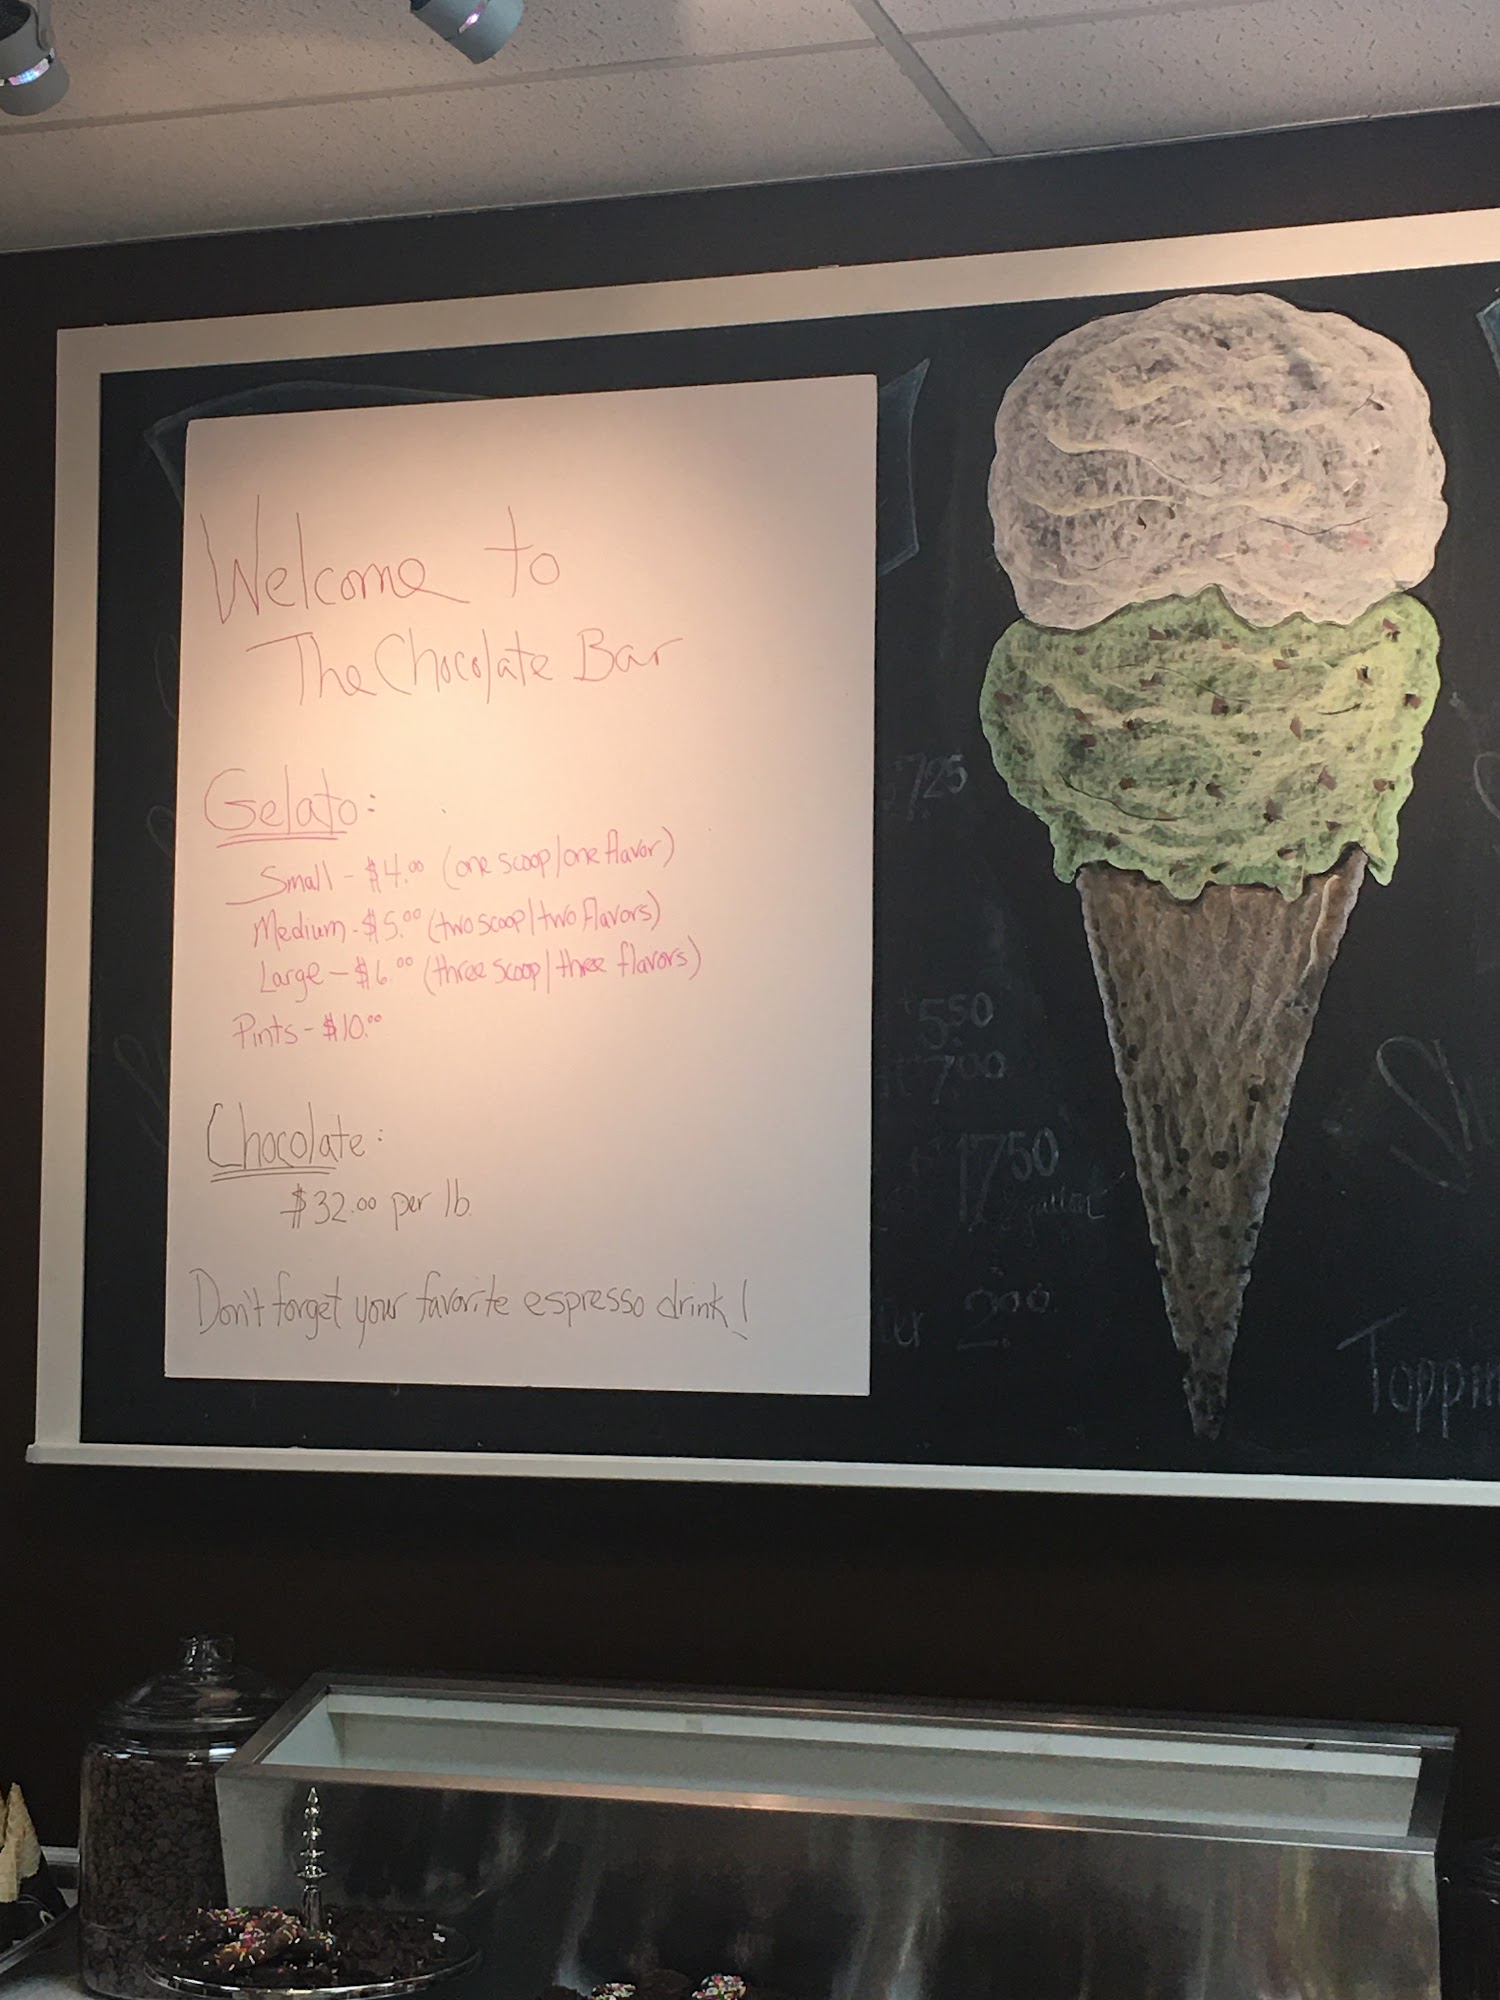 Welcome to
The Chocolate Bar
Gelato:
Small - $4.00 (one scoop/one flavor)
Medium - $5.00 (two scoop/two flavors)
Large - $6.00 (three scoop/three flavors)
Pints - $10.00
Chocolate:
$32.00 per lb.
Don't forget your favorite espresso drink!
7.25
5.50
7.00
17.50
2.00